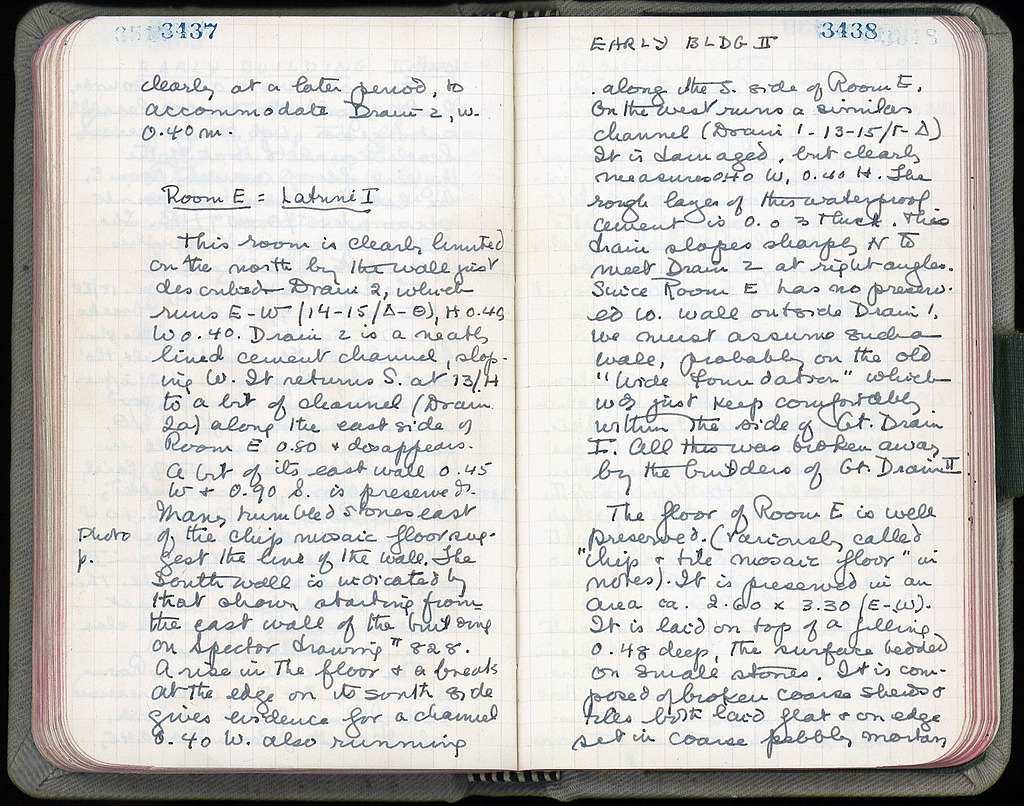 3437
clearly at a later period, to
accommodate Drain 2, W.
0.40 m.
Room E = Latrine I
This room is clearly limited
on the north by the wall just
described. Drain 2, which
runs E-W (14-15/Δ-Θ), H 0.40
W 0.40. Drain 2 is a neatly
lined cement channel, slop-
ing W. It returns S. at 13/H
to a bit of channel (Drain
2a) along the east side of
Room E 0.80 & disappears.
A bit of its east wall 0.45
W & 0.90 S. is preserved.
Many tumbled stones east
of the chip mosaic floor sug-
Photo
p.
gest the line of the wall. The
South wall is indicated by
that shown starting from
the east wall of the building
on Spector drawing # 828.
A rise in the floor & a break
at the edge on its south side
gives evidence for a channel
0.40 W. also running
EARLY BLDG II
3438
along the S. side of Room E.
On the west runs a similar
channel (Drain 1-13-15/Γ-Δ)
It is damaged, but clearly
measures 0.40 W, 0.40 H. The
rough layer of this waterproof
cement is 0.03 thick. This
drain slopes sharply N to
meet Drain 2 at right angles.
Since Room E has no preserv-
ed W. wall outside Drain 1,
we must assume such a
wall, probably on the old
"Wide Foundation" which
would just keep comfortably
within the side of Gt. Drain
I. All this was broken away
by the builders of Gt. Drain II
The floor of Room E is well
preserved. (Variously called
"chip & tile mosaic floor" in
notes). It is preserved in an
area ca. 2.60 x 3.30 (E-W).
It is laid on top of a filling
0.48 deep, the surface bedded
on small stones. It is com-
posed of broken coarse sherds &
tiles both laid flat & on edge
set in coarse pebbly mortar,